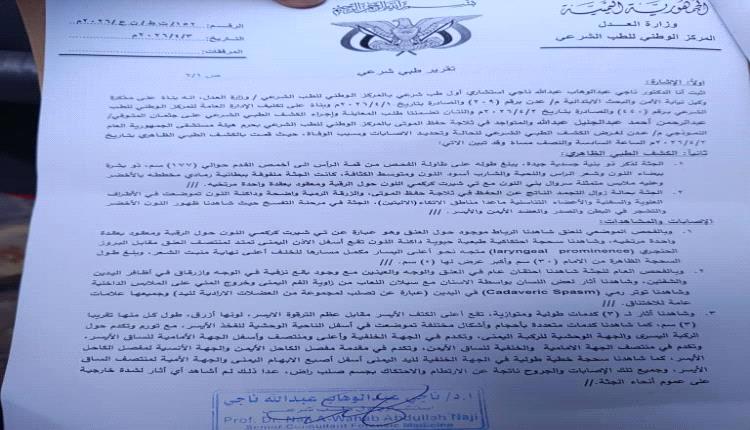 الجمهورية اليمنية
وزارة العدل
المركز الوطني للطب الشرعي
بسم الله الرحمن الرحيم
الرقم: ١٥٢/ت ط/ن ع/٢٠٢٦م
التاريخ: ٢٠٢٦/٩/٣م
المرفقات:
ص ٦/١
تقرير طبي شرعي
أولاً: الإشارة:
أثبت أنا الدكتور ناجي عبدالوهاب عبدالله ناجي استشاري أول طب شرعي بالمركز الوطني للطب الشرعي / وزارة العدل، انه بناء على مذكرة
وكيل نيابة الأمن والبحث الابتدائية م/ عدن برقم (٢٠٩) والصادرة بتاريخ ٢٠٢٦/٤/١م وبناء على تكليف الإدارة العامة للمركز الوطني للطب
الشرعي برقم (٤٤٠) والصادرة بتاريخ ٢٠٢٦/٤/٢م واللتان تضمنتا طلب المعاينة وإجراء الكشف الطبي الشرعي على جثمان المتوفي/
عبدالرحمن أحمد عبدالجليل عبدالله والمتواجد في ثلاجة حفظ الموتى بالمركز الوطني للطب الشرعي بحرم هيئة مستشفى الجمهورية العام
النموذجي م/ عدن لغرض الكشف الطبي الشرعي للحالة وتحديد الاصابات وبسبب الوفاة، حيث قمت بالكشف الطبي الظاهري بتاريخ
٢٠٢٦/٤/٢م الساعة السادسة والنصف مساء وقد تبين الاتي:
ثانياً: الكشف الطبي الظاهري:
١. الجثة لذكر ذو بنية جسدية جيدة، يبلغ طوله على طاولة الفحص من قمة الرأس الى أخمص القدم حوالي (١٧٧) سم، ذو بشرة
بيضاء اللون وشعر الراس والنحية والشارب أسود اللون ومتوسط الكثافة، كانت الجثة ملفوفة ببطانية رمادي مخططه بالأخضر
وعليه ملابس متمثلة سروال بني اللون مع تي شيرت كركمي اللون حول الرقبة ومعقود بعقدة واحدة مرتخيه. ///
٢. الجثة بحالة زوال التجمد الناتج عن الحفظ في ثلاجة حفظ الموتى، والزرقة الرمية واضحة وداكنة اللون تموضعت في الأطراف
العلوية والسفلية والأعضاء التناسلية ماعدا مناطق الاتكاء (الاليتين)، الجثة في مرحلة التفسخ حيث شاهدنا ظهور اللون الأخضر
والتشجر في البطن والصدر والعضد الأيمن والأيسر. ///
الإصابات والمشاهدات:
١. وبالفحص الموضعي للعنق شاهدنا الرباط موجود حول العنق وهو عبارة عن تي شيرت كركمي اللون حول الرقبة ومعقود بعقدة
واحدة مرتخيه، وشاهدنا سحجة احتكاكية طبيعية حيوية داكنة اللون تقع أسفل الاذن اليمنى تمتد لمنتصف العنق مقابل البروز
الحنجري (laryngeal prominence) متجه نحو أعلى اليسار مكمل مسارها للخلف أعلى نهاية منبت الشعر، وبلغ طول
السحجة الظاهرة من الامام (٣٠) سم وأكبر عرض لها (٥) سم. ///
٢. وبالفحص العام للجثة شاهدنا احتقان عام في العنق والوجه والعينين مع وجود بقع نزفية في الوجه وازرقاق في أظافر اليدين
والشفتين، وشاهدنا آثار لعض اللسان بواسطة الاسنان مع سيلان اللعاب من زاوية الفم اليمنى وخروج المني على الملابس الداخلية
وشاهدنا توتر رمي (Cadaveric Spasm) في اليدين (عبارة عن تصلب لمجموعة من العضلات الارادية لليد) وجميعها علامات
عامة للاختناق. ///
٣. وشاهدنا آثار لـ (٣) كدمات طولية ومتوازية، تقع أعلى الكتف الأيسر مقابل عظم الترقوة الايسر، لونها أزرق، طول كل منها تقريبا
(٣) سم، كما شاهدنا كدمات متعددة بأحجام وأشكال مختلفة تموضعت في أسفل الناحية الوحشية للفخذ الأيسر، مع تورم وتكدم حول
الركبة اليسرى والجهة الوحشية للركبة اليمنى، وتكدم في الجهة الخلفية وأعلى ومنتصف وأسفل الجهة الأمامية للساق الأيسر،
وتكدم في منتصف الجهة الامامية والخلفية للساق الأيمن، وتكدم في مقدمة مفصل الكاحل الأيمن والجهة الأنسية لمفصل الكاحل
الأيسر، كما شاهدنا سحجة خطية طولية في الجهة الخلفية لليد اليمنى أسفل أصبع الابهام اليمنى والجهة الأمية لمنتصف الساق
الأيسر، وجميع تلك الإصابات والجروح ناتجة عن الارتطام والاحتكاك بجسم صلب راض، عدا ذلك لم أشاهد أي آثار لشدة خارجية
على عموم أنحاء الجثة. ///
ا.د/ ناجي عبدالوهاب عبدالله ناجي
Prof. Dr. Nagi A-Wahab Abdullah Naji
Senior Consultant Forensic Medicine